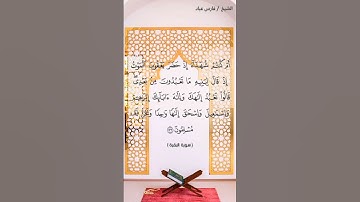 الشيخ / فارس عباد
أَمْ كُنتُمْ شُهَدَآءَ إِذْ حَضَرَ يَعْقُوبَ ٱلْمَوْتُ
إِذْ قَالَ لِبَنِيهِ مَا تَعْبُدُونَ مِنۢ بَعْدِى
قَالُوا۟ نَعْبُدُ إِلَٰهَكَ وَإِلَٰهَ ءَابَآئِكَ إِبْرَٰهِۦمَ
وَإِسْمَٰعِيلَ وَإِسْحَٰقَ إِلَٰهًا وَٰحِدًا وَنَحْنُ لَهُۥ
مُسْلِمُونَ
(سورة البقرة)